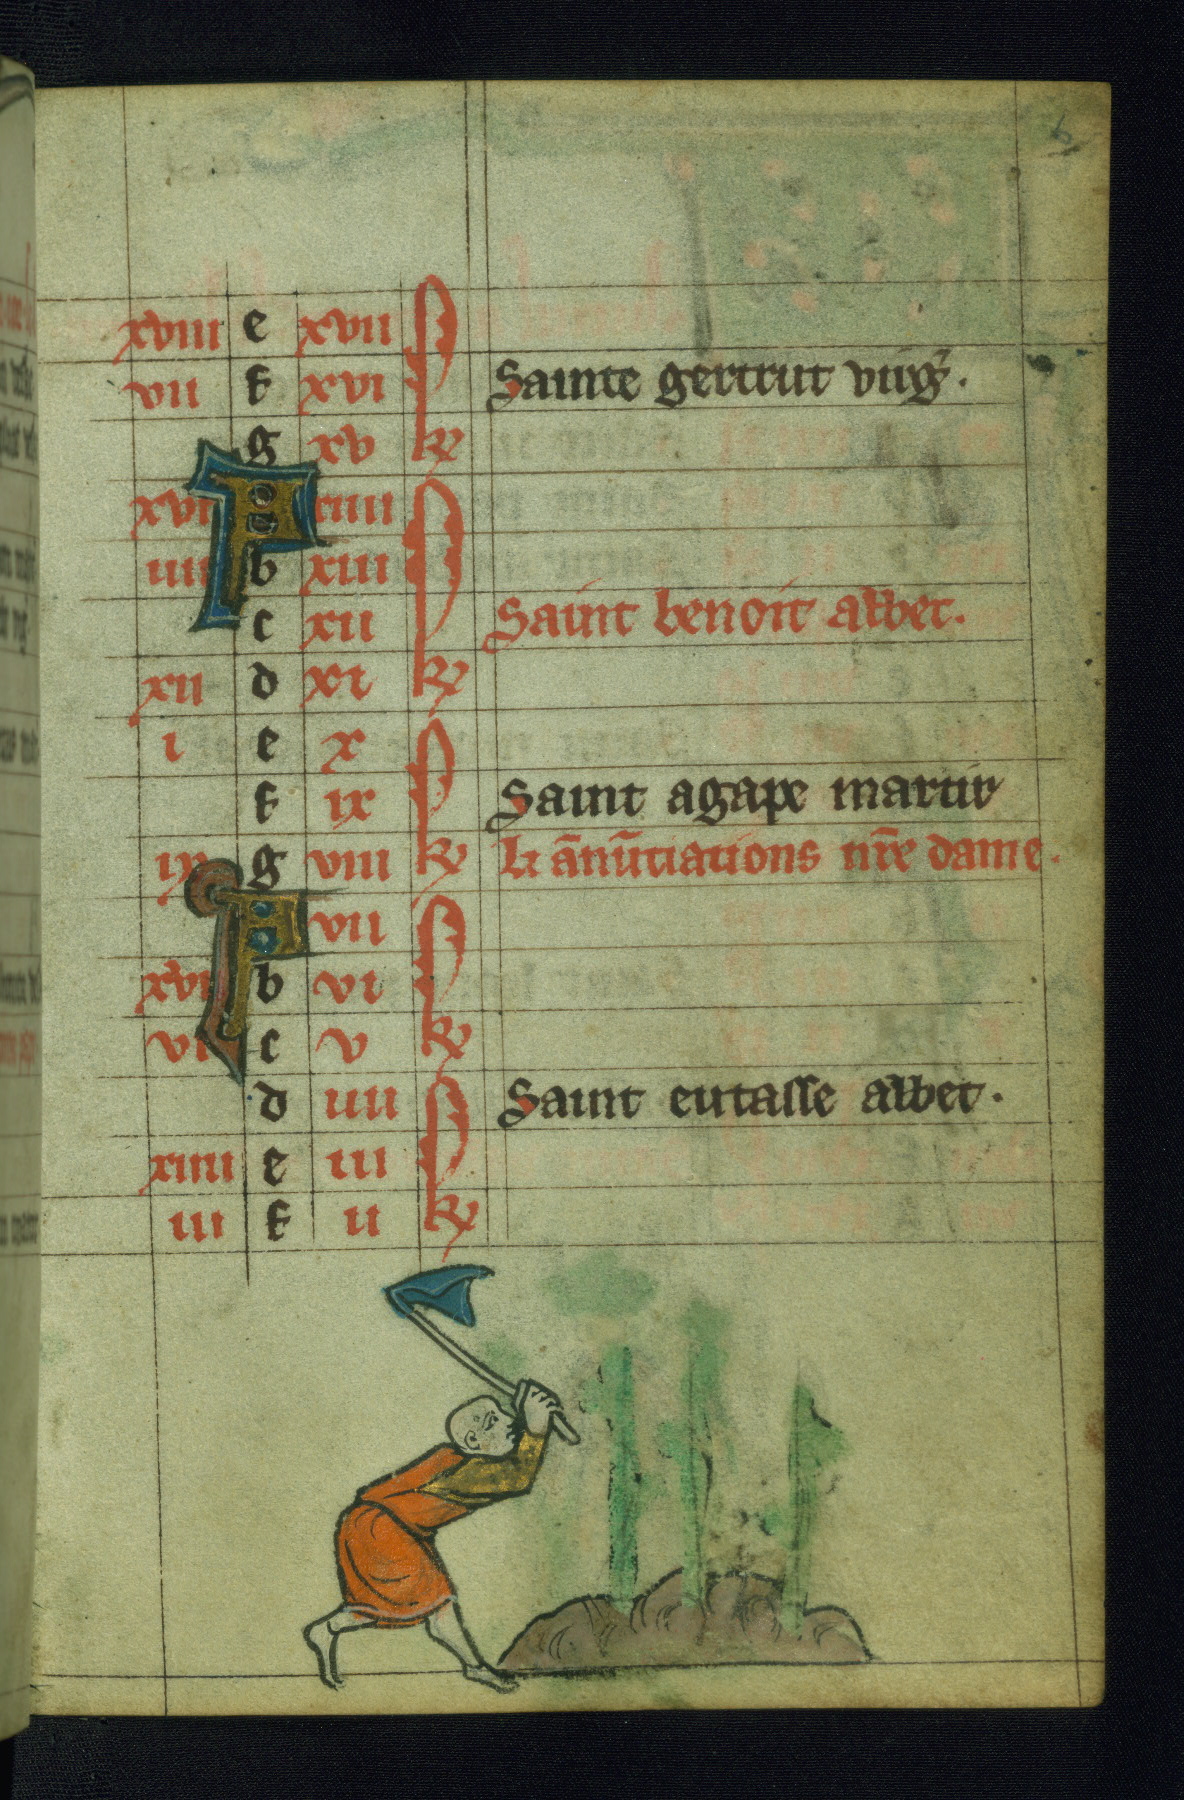 xviii e xvii
vii f xvi Sainte gertrut virg̃.
g xv kł
xvi A xiiii
iiii b xiii
c xii Saint benoit abbet.
xii d xi kł
i e x
f ix Saint agape martir
ix g viii kł Li ãnũtiations nr̃e dame.
A vii
xvi b vi
vi c v kł
d iiii Saint eutasse abbet.
xiiii e iii
iii f ii kł